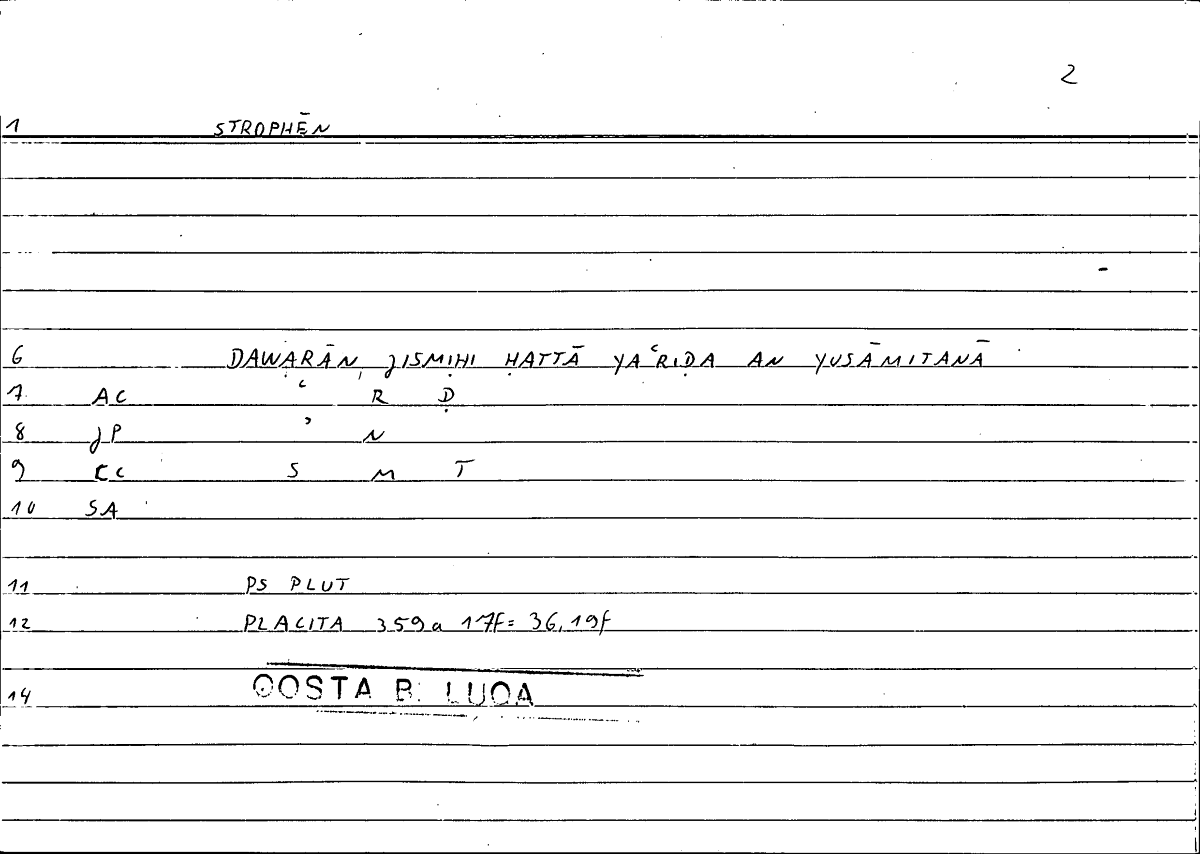 2
1 STROPHĒN
6 DAWARĀN JISMIHI ḤATTĀ YAʿRIḌA AN YUSĀMITANĀ
7 AC ʿ R Ḍ
8 JP ʾ N
9 CC S M T
10 SA
11 PS PLUT
12 PLACITA 359a 17f = 36,19f
14 QOSTA B. LUQA